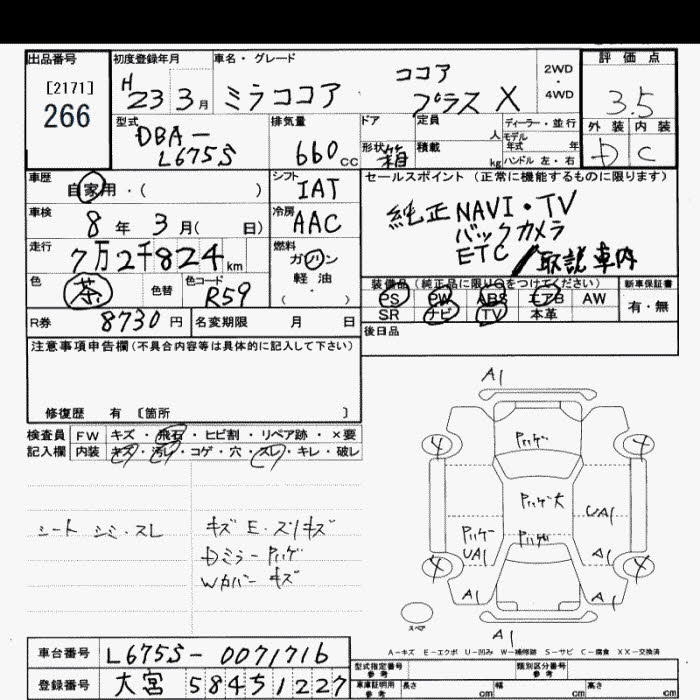 出品番号
[2171]
266
初度登録年月
H 23 3月
車名・グレード
ミラココア
ココア
プラス X
2WD
・
4WD
評価点
3.5
外装 内装
D C
型式
DBA-
L675S
排気量
660 CC
ドア
形状 箱
定員 人
積載 kg
ディーラー・並行
モデル
年式 年
ハンドル 左・右
車歴
自家用・( )
シフト
IAT
車検
8年 3月( 日)
冷房
AAC
走行
7万2千824km
燃料
ガソリン
軽油
( ・ )
色
茶
色替
色コード
R59
R券
8730円
名変期限 月 日
セールスポイント(正常に機能するものに限ります)
純正NAVI・TV
バックカメラ
ETC/取説車内
装備品(純正品に限り○をつけてください)
PS PW ABS エアB AW
SR ナビ TV 本革
新車保証書
有・無
後日品
注意事項申告欄(不具合内容等は具体的に記入して下さい)
修復歴 有 〔箇所 〕
検査員
記入欄
FW キズ・飛石・ヒビ割・リペア跡・×要
内装 キズ・汚レ・コゲ・穴・スレ・キレ・破レ
シート シミ・スレ
キズ E・スリキズ
Dミラー Pハゲ
Wカバー キズ
A1
4 4
Pハゲ
Pハゲ大
UA1
Pハゲ
UA1
Pハゲ
A1
4 4
A1 A1
A1
スペア
A-キズ E-エクボ U-凹み W-補修跡 S-サビ C-腐食 XX-交換済
車台番号 L675S-0071716
登録番号 大宮 584 5 1227
型式指定番号
参考
類別区分番号
参考
車庫証明用
参考
長さ cm 幅 cm 高さ cm